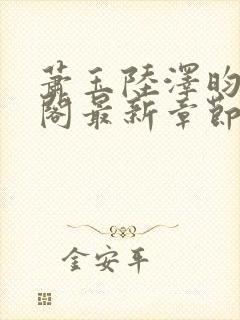 蕭玉陸澤昀
閣最新章節
金安平